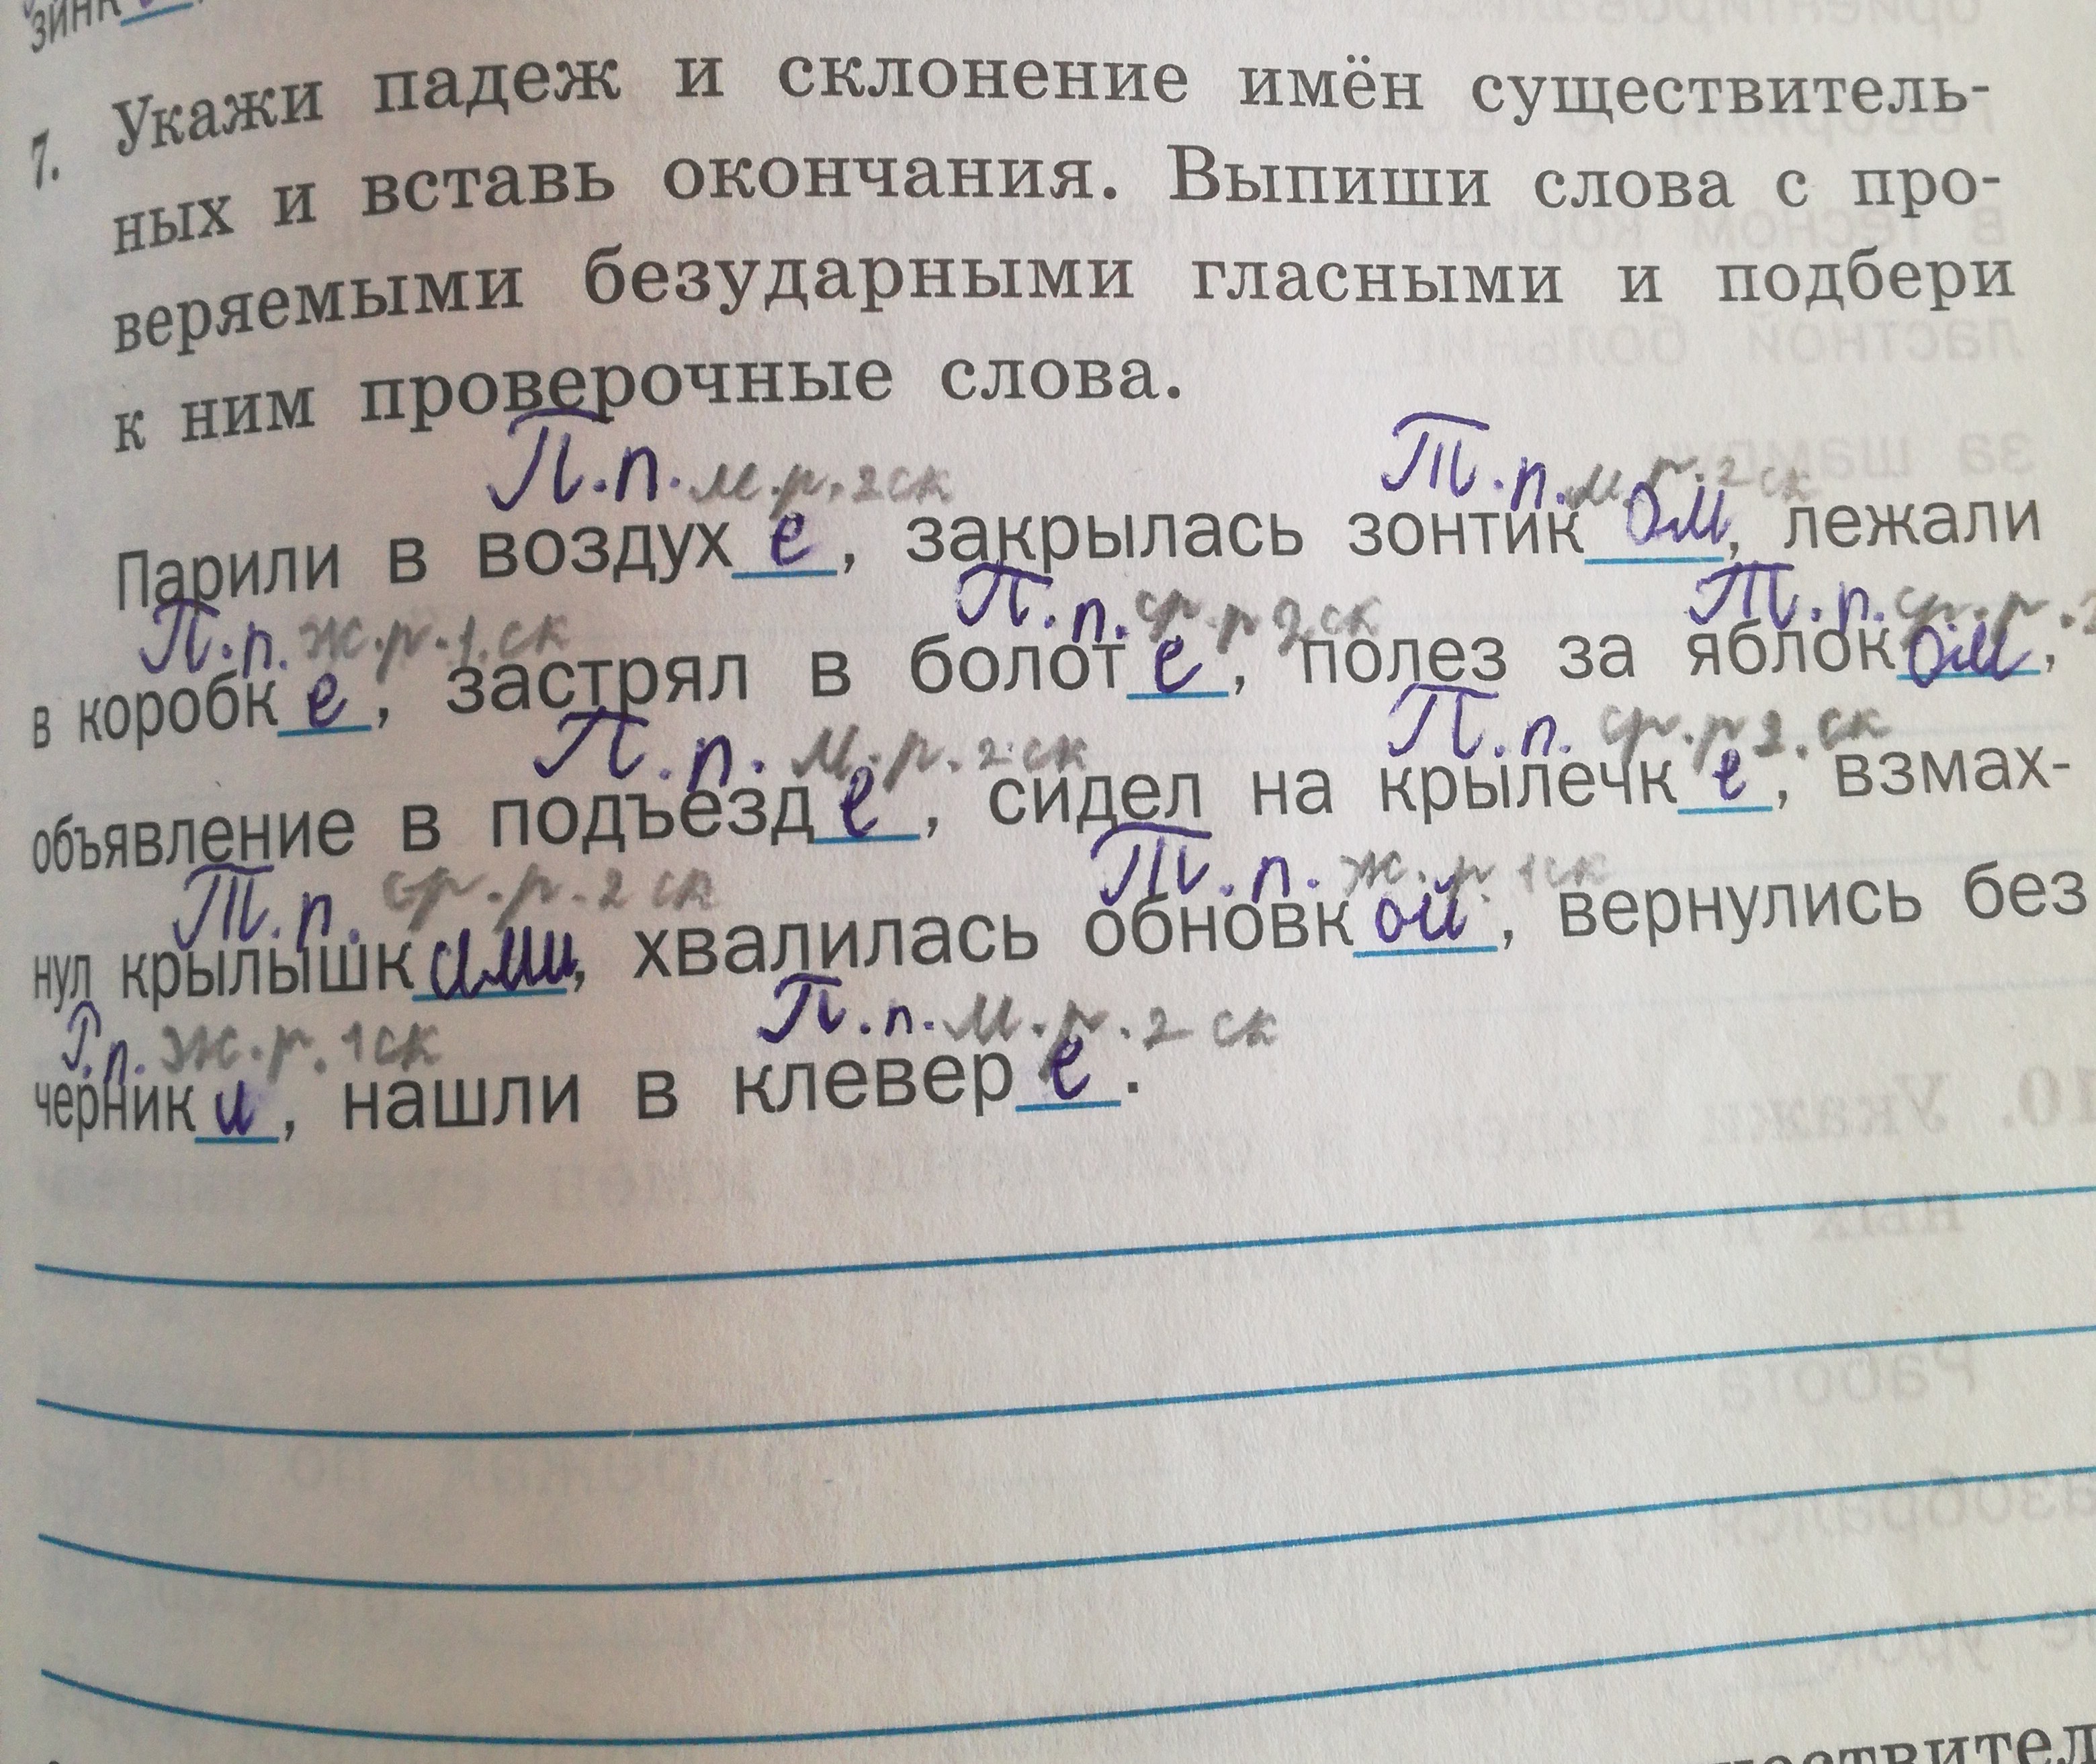 7. Укажи падеж и склонение имён существитель-
ных и вставь окончания. Выпиши слова с про-
веряемыми безударными гласными и подбери
к ним проверочные слова.
П.п. м.р. 2 ск Т.п. м.р. 2 ск
Парили в воздухе, закрылась зонтиком, лежали
П.п. ж.р. 1 ск П.п. ср.р 2 ск Т.п. ср.р.
в коробке, застрял в болоте, полез за яблоком,
П.п. м.р. 2 ск П.п. ср.р 2. ск
объявление в подъезде, сидел на крылечке, взмах-
Т.п. ср.р. 2 ск Т.п. ж.р. 1 ск
нул крылышками, хвалилась обновкой, вернулись без
Р.п. ж.р. 1 ск П.п. м.р. 2 ск
черники, нашли в клевере.